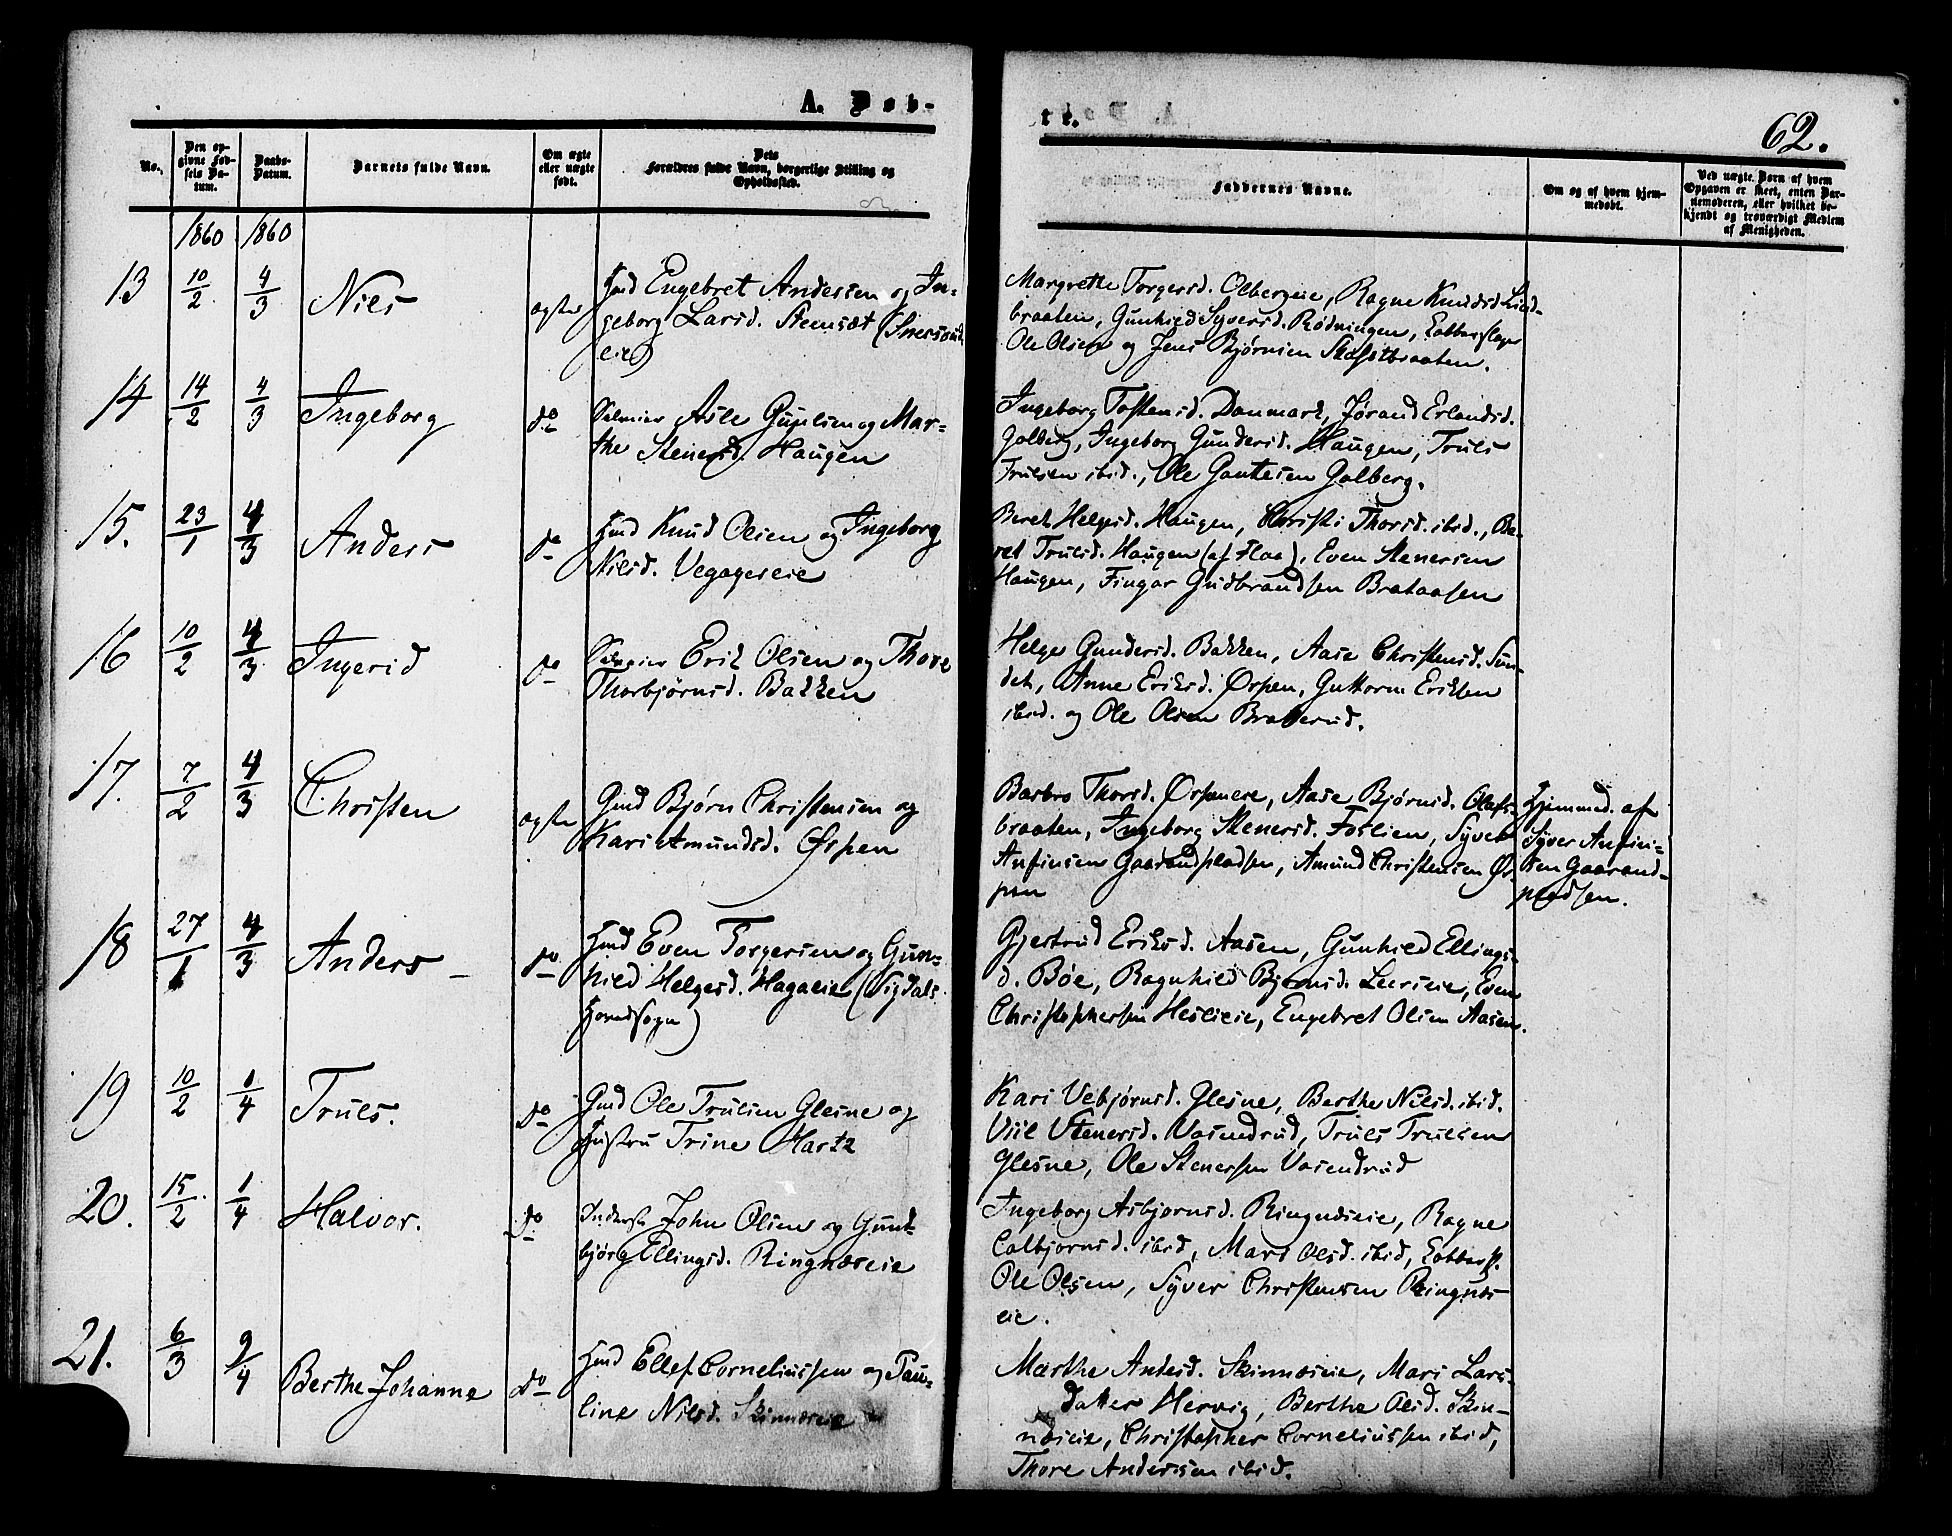 A. Døb-
te.
62.
No.
Den op-
givne Fød-
sels Da-
tum.
Daabs-
Datum.
Barnets fulde Navn.
Om ægte
eller uægte
født.
Dets
Forældres fulde Navn, borgerlige Stilling og
Opholdssted.
Faddernes Navne.
Om og af hvem hjem-
medøbt.
Ved uægte Børn af hvem
Opgaven er skeet, enten Bar-
nemoderen, eller hvilket be-
kjendt og troværdigt Medlem
af Menigheden.
1860 1860
13 10/2 4/3 Niels ægte
Hmd Engebret Andersen og In-
geborg Larsd. Steensæt (Snersrud
eie)
Margrethe Torgersd. Olbergeie, Ragne Knudsd Lind-
braaten, Gunhild Syversd. Rødningen,
Ole Olsen og Jens Bjørnsen
14 14/2 4/3 Ingeborg do
Selveier Asle Gulsen og Mar-
the Stenersd. Haugen
Ingeborg Tostensd. Danmark, Jørand Erlandsd.
Golberg, Ingeborg Gundersd. Haugen, Truls
Trulsen ibid., Ole Gautesen Golberg.
15. 23/1 4/3 Anders do
Hmd Knud Olsen og Ingeborg
Nilsd. Vegageseie
Beret Helgesd. Haugen, Christi Thorsd. ibid., Be-
ret Trulsd. Haugen (af Flaa), Even Stenersen
Haugen, Fingar Gudbrandsen Brataasen
16 10/2 4/3 Ingerid do
Selveier Erik Olsen og Thore
Thorbjørnsd. Bakken
Helge Gundersd. Bakken, Aase Christensd. Sun-
det, Anne Eriksd. Ørpen, Guttorm Eriksen
ibid. og Ole Olsen Bratterud.
17. 7/2 4/3 Christen ægte
Gmd Bjørn Christensen og
Kari Amundsd. Ørpen
Barbro Thorsd. Ørpeneie, Aase Bjørnsd. Olafs-
braaten, Ingeborg Stenersd. Foslien, Syver
Anfinsen Gaarandpladsen, Amund Christensen Ør-
pen
Hjemmed. af
Syver Anfin-
sen Gaarand-
pladsen.
18 27/1 4/3 Anders do
Hmd Even Torgersen og Gun-
hild Helgesd. Hagaeie (Sigdals
Hovedsogn)
Gjertrud Eriksd. Aasen, Gunhild Ellings-
d. Bøe, Ragnhild Bjørnsd. Leersieie, Even
Christophersen Heslieie, Engebret Olsen Aasen.
19 10/2 1/4 Truls. do
Gmd Ole Trulsen Glesne og
Hustru Trine Hartz
Kari Vebjørnsd. Glesne, Berthe Nilsd. ibid.
Viil Stenersd. Vasendrud, Truls Trulsen
Glesne, Ole Stenersen Vasendrud
20. 15/2 1/4 Halvor. do
Inderst John Olsen og Gund-
bjørg Ellingsd. Ringnæseie
Ingeborg Asbjørnsd. Ringnæseie, Ragne
Colbjørnsd. ibid, Mari Olsd. ibid,
Ole Olsen, Syver Christensen Ringnæs-
eie.
21. 6/3 9/4 Berthe Johanne do
Hmd Ellef Corneliussen og Pau-
line Nilsd. Skinnæseie
Marthe Andersd. Skinnæseie, Mari Lars-
datter Hervig, Berthe Olsd. Skin-
næseie, Christopher Corneliussen ibid,
Thore Anderssen ibid.